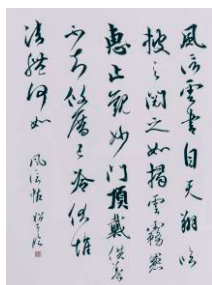 風信雲書自天翔臨
披之閲之如揭雲霧兼
惠止觀妙門頂戴供養
不知攸厝已冷伏惟
法體何如
風信帖